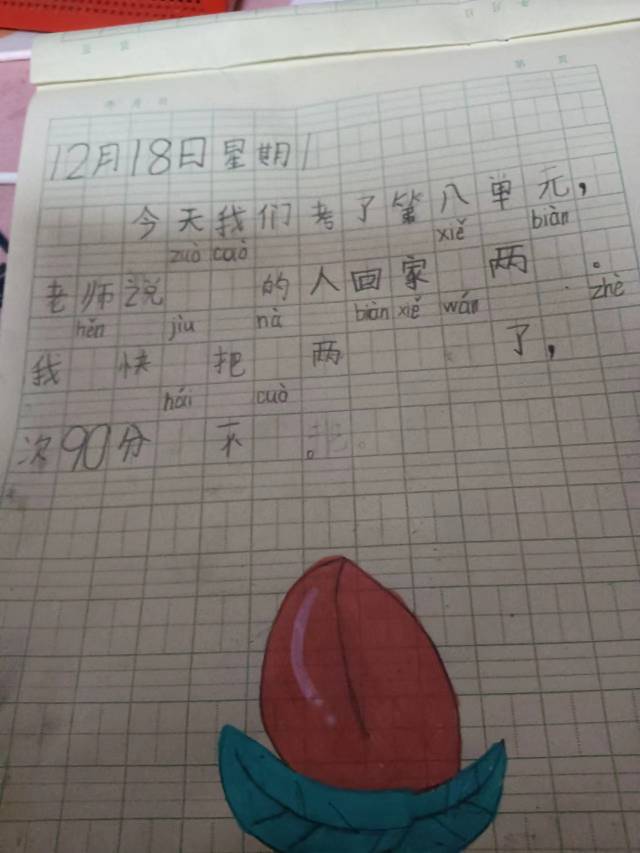 年 月 日 第 页
12月18日星期1
今天我们考了第八单元，
zuò cuò xiě biàn
老师说 的人回家 两 。
hěn jìu nà biàn xiě wán zhè
我 快 把 两 了，
hái cuò
次90分 不 。